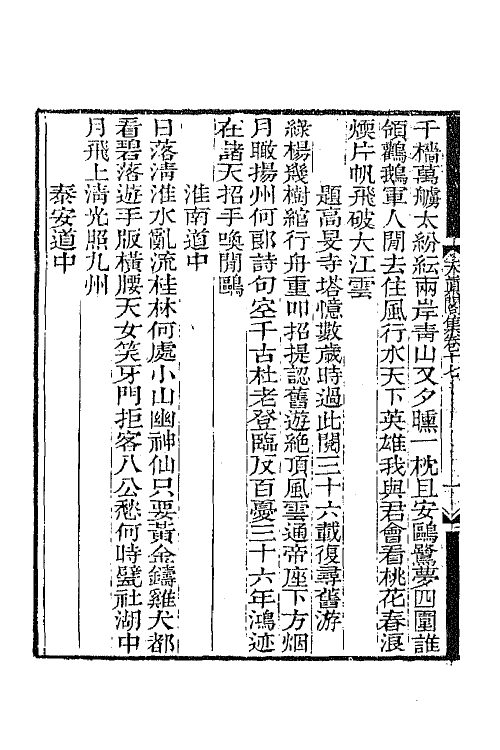 千檣萬艣太紛紜兩岸青山又夕曛一枕且安鷗鷺夢四圍誰
領鸛鵝軍人閒去住風行水天下英雄我與君會看桃花春浪
煗片帆飛破大江雲
題高旻寺塔憶數歲時過此閱三十六載復尋舊游
綠楊幾樹綰行舟重叩招提認舊遊絶頂風雲通帝座下方烟
月瞰揚州何郎詩句空千古杜老登臨反百憂三十六年鴻迹
在諸天招手喚閒鷗
淮南道中
日落淸淮水亂流桂林何處小山幽神仙只要黃金鑄雞犬都
看碧落遊手版橫腰天女笑牙門拒客八公愁何時甓社湖中
月飛上淸光照九州
泰安道中
集卷十七